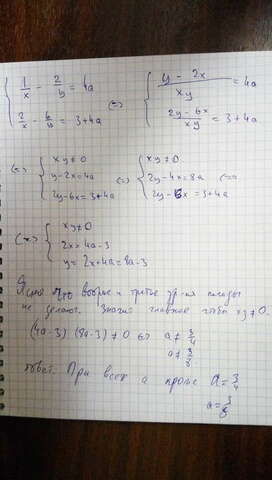 { 1/x - 2/y = 4a (=) { (y - 2x)/(xy) = 4a
{ 2/x - 6/y = 3+4a { (2y - 6x)/(xy) = 3+4a
(=) { xy≠0 (=) { xy≠0
{ y-2x=4a { 2y-4x=8a (=>
{ 2y-6x=3+4a { 2y-6x=3+4a
(=) { xy≠0
{ 2x=4a-3
{ y=2x+4a=8a-3
Ясно что второе и третье ур-ия погоды
не делают. Значит главное чтоб xy≠0.
(4a-3)(8a-3)≠0 <=> a≠3/4
a≠3/8
Ответ: При всех a кроме a=3/4
a=3/8